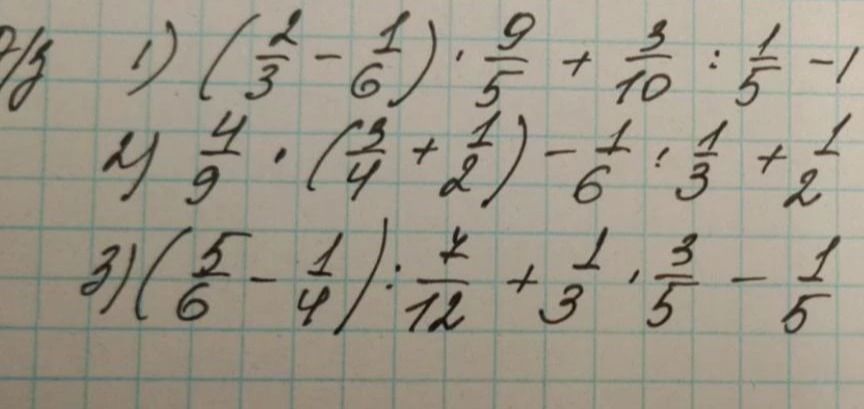 Д/з 1) (2/3 - 1/6) · 9/5 + 3/10 : 1/5 - 1
2) 4/9 · (3/4 + 1/2) - 1/6 : 1/3 + 1/2
3) (5/6 - 1/4) : 7/12 + 1/3 · 3/5 - 1/5